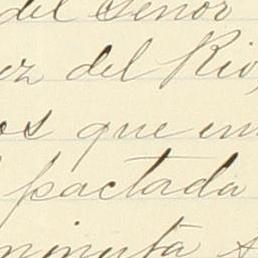 del Señor
ez del Rio,
os que en
pactada
minuta s